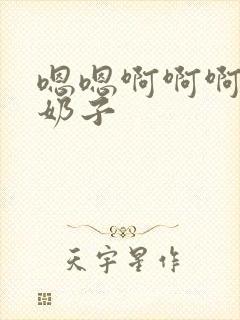 嗯嗯啊啊啊
奶子
天宇星作